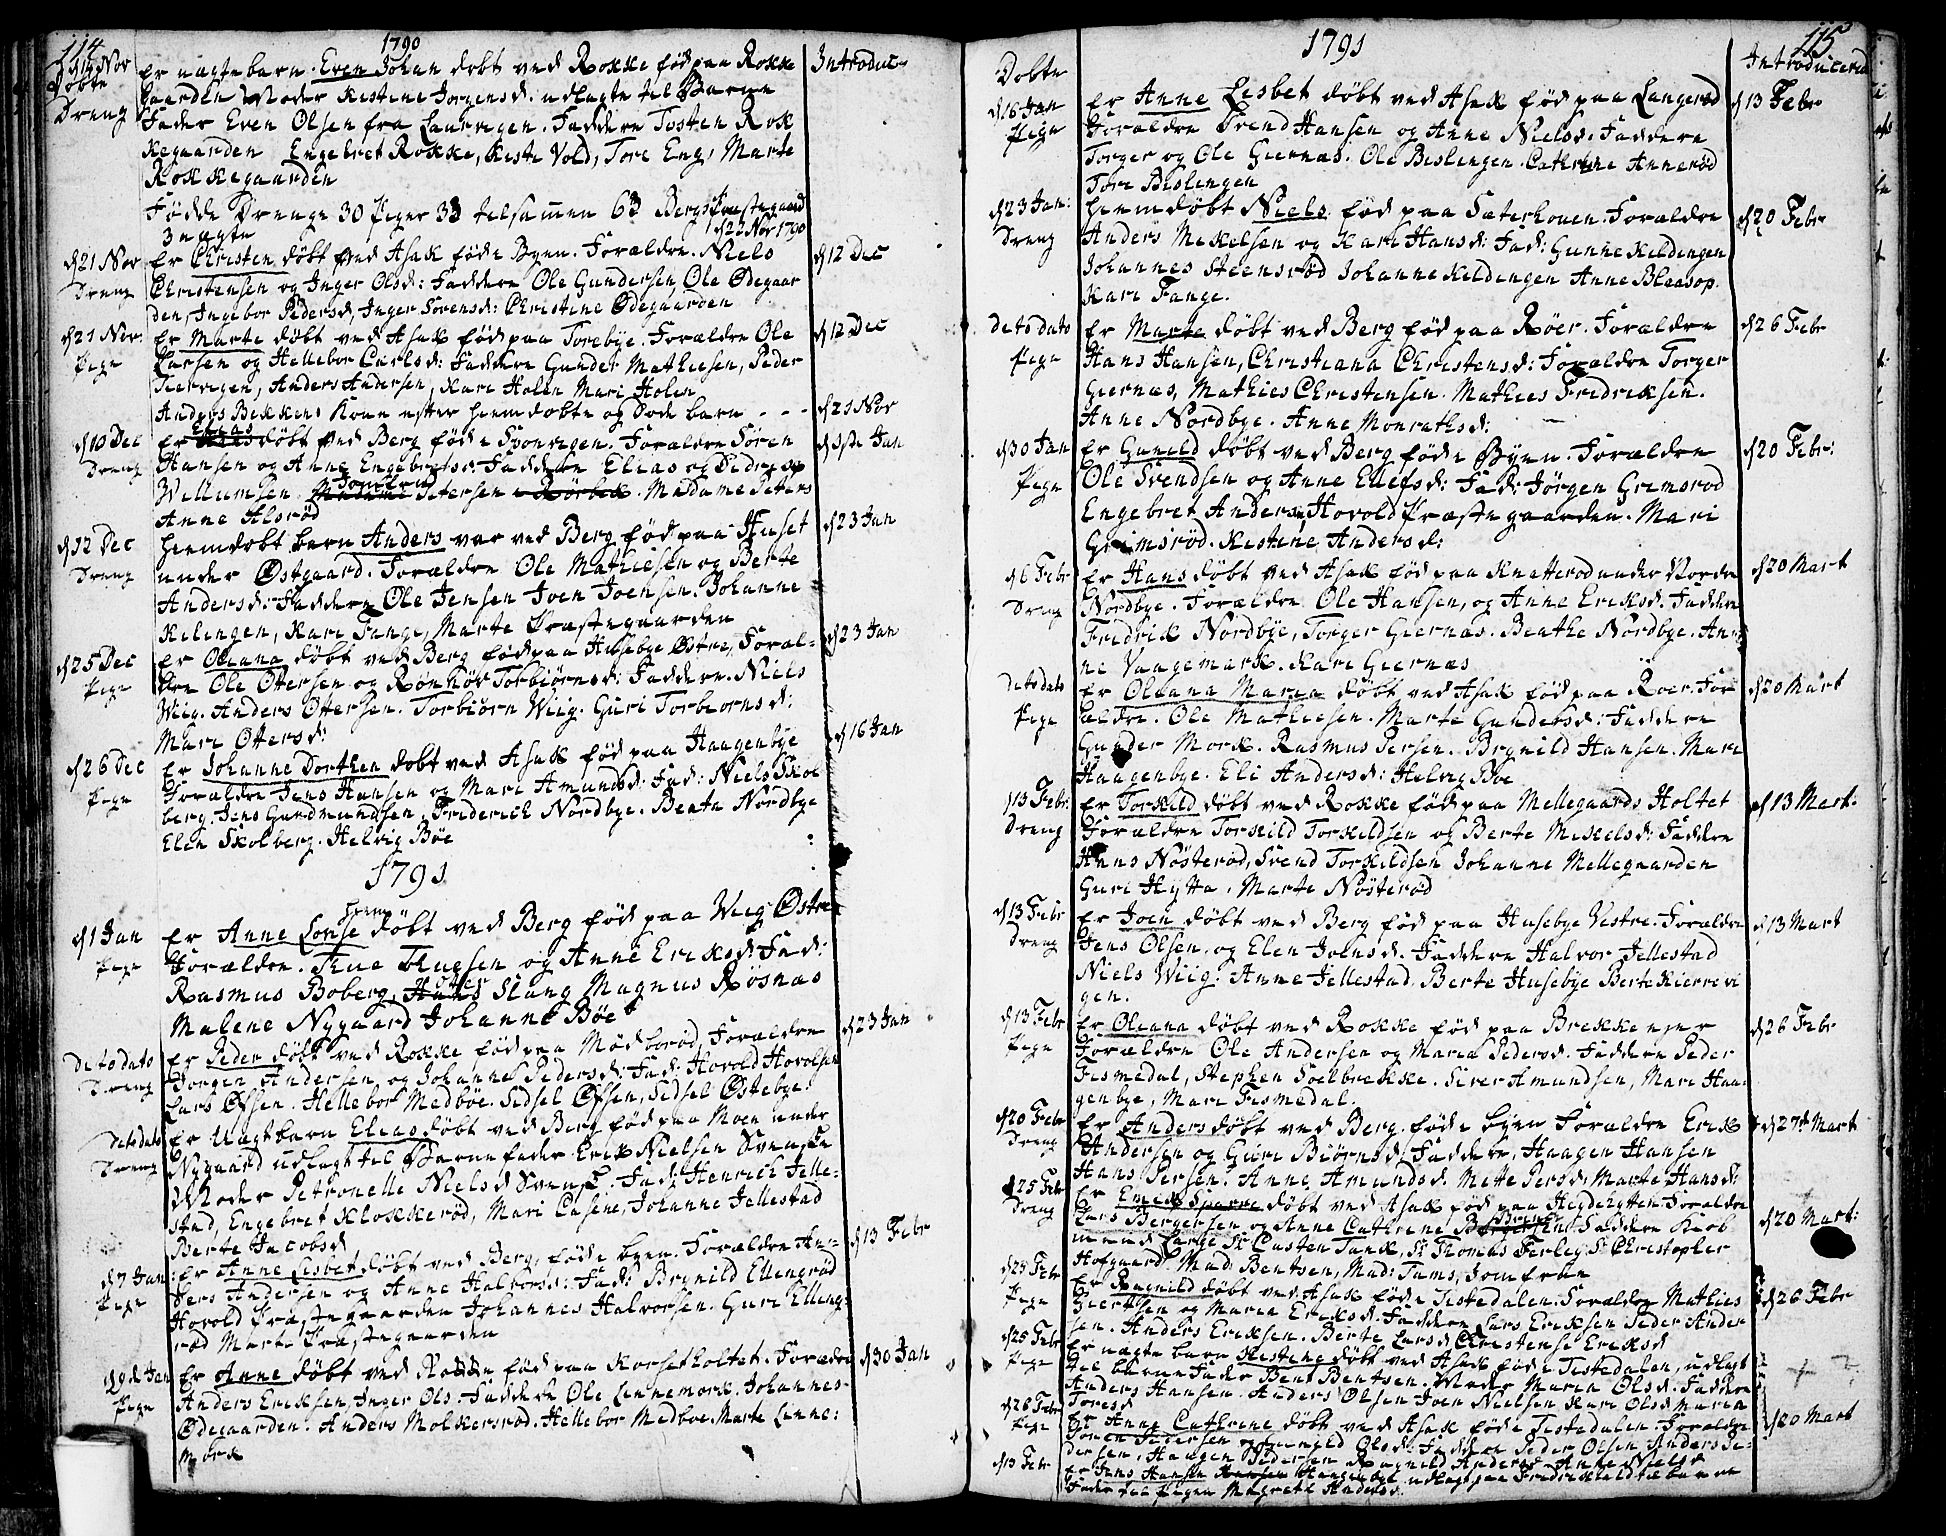 114
1790
d 14 Nov
Døbte
Introduc
Dreng
Er uægte barn Even Johan døbt ved Rokke fød paa Rokke
Gaarden Moder Kistine Jørgensd. udlagte til Barne
Fader Even Olsen fra Laurvigen. Faddere Tosten Rok
kegaarden Engebret Rokke, Kiste Vold, Tore Eng, Marte
Rokkegaarden
Fødde Drenge 30 Piger 33 tilsamen 63 Bergs Præstegaard
3 uægte d 22 Nov 1790
d 21 Nov
Dreng
Er Christen døbt ved Asak fød i Byen. Forældre. Niels
d 12 Dec
Christensen og Inger Olsd: Faddere Ole Gundersen, Ole Ødegaar
den, Ingebor Pedersd, Inger Sørensd: Christine Ødegaarden
d 21 Nov
Pige
Er Marte døbt ved Asak fød paa Torebye. Forældre Ole
d 12 Dec
Larsen og Hellebor Carlsd: Faddere Gunder Mathiesen, Peder
Tiervigen, Anders Andersen, Kari Holen Mari Holen
Anders Bekkens Kone efter hiemdøbte og døde barn - - -
d 21 Nov
d 10 Dec
Dreng
Er Elias døbt ved Berg fød i Svonvigen. Forældre Søren
d 1ste Jan
Hansen og Anne Engebretsd. Faddere Elias og Didrich
Willumsen. Madame Jomfrue Petersen Rørbek. Madame Peters
Anne Alsrød
d 12 Dec
Dreng
hiemdøbt barn Anders var ved Berg fød paa Huset
d 23 Jan
under Østgaard. Forældre Ole Mathiesen og Berte
Andersd: Faddere Ole Jensen Joen Joensen. Johanne
Kilingen, Kari Fange, Marte Præstegaarden
d 25 Dec
Pige
Er Oleana døbt ved Berg fød paa Husebye Østre, Foræl-
d 23 Jan
dre Ole Ottersen og Rønhov Torbiørnsd: Faddere. Niels
Wiig. Anders Ottersen. Torbiørn Wiig. Guri Torbiornsd:
Mari Ottersd:
d 26 Dec
Pige
Er Johanne Dorthea døbt ved Asak fød paa Haagenbye
d 16 Jan
Forældre Jens Hansen og Mari Amundsd: Fad: Niels Skol
berg. Jens Gundmundsen. Friderich Nordbye. Beata Nordbye
Elen Skolberg. Helvig Bøe
1791
d 1 Jan
Pige
Er Anne Lovise hiem døbt ved Berg fød paa Wiig Østre
Forældre. Thue Thuesen og Anne Eriksd: Fad:
Rasmus Boberg, Hans Slang Magnus Røsnas
Malene Nygaard Johanne Bøe
detodato
Dreng
Er Peder døbt ved Rokke fød paa Mødborød, Forældre
d 23 Jan
Jorgen Andersen og Johanne Pedersd: Fad: Hovold Hovolsen
Lars Olsen. Hellebor Medbøe. Sidsel Olsen, Sidsel Østebye:
detodato
Dreng
Er Uægt barn Elias døbt ved Berg fød paa Moen under
Nygaard udlagt til Barnefader Erik Nielsen Svenske
Moder Petronelle Nielsd Svensk. Fad: Henrich Jelle-
stad, Engebret Klokkerød, Mari Casene, Johanne Jellestad
Berte Jacobsd
d 7 Jan
Pige
Er Anne Lisbet døbt ved Berg, fød i byen. Forældre An-
d 13 Febr
ders Andersen og Anne Halvorsd: Fad: Brynild Ellengrød
Hovold Præstegaarden Johannes Halvorsen. Guri Elleng-
rød Marte Præstegaarden
d 9de Jan
Pige
Er Anne døbt ved Rokke fød paa Korsetholtet. Forældre
d 30 Jan
Anders Eriksen, Inger Ols. Faddere Ole Linnemork. Johannes
Ødegaarden. Anders Molkersrød. Hellebor Medboe. Marte Linne-
mork
115
1791
Døbte
Introducered
d 16 Jan
Pige
Er Anne Lisbet døbt ved Asak fød paa Langerød
d 13 Febr
Forældre Svend Hansen og Anne Nielsd: Faddere
Torger og Ole Giernæs. Ole Bislingen. Cathrine Annerød
Tore Bislengen
d 23 Jan:
Dreng
hiemdøbt Niels fød paa Sæterhouen. Forældre
d 20 Febr
Anders Mikelsen og Kari Hansd: Fad: Gunne Kildingen
Johannes Steensrød Johanne Kildingen Anne Blaasop.
Kari Fange.
detodato
Pige
Er Marte døbt ved Berg fød paa Røer. Forældre
d 26 Febr
Hans Hansen, Christiana Christensd: Forældre Torger
Giernæs, Mathies Christensen. Mathies Fridriksen.
Anne Nordbye. Anne Monrathsd:
d 30 Jan
Pige
Er Gunild døbt ved Berg fød i Byen. Forældre
d 20 Febr:
Ole Svendsen og Anne Ellefsd: Fad: Jørgen Grimsrød
Engebret Anders, Hovold Præstegaarden. Mari
Grimsrød. Kistine Andersd:
d 6 Febr
Dreng
Er Hans døbt ved Asak fød paa Knatterød under Norden
d 20 Mart
Nordbye. Forældre Ole Hansen, og Anne Eriksd. Faddere
Fridrik Nordbye, Torger Giernæs. Beathe Nordbye. An-
ne Vaagemark. Kari Giernæs
detodato
Pige
Er Oleana Maria døbt ved Asak fød paa Røer. For
d 20 Mart
ældre. Ole Mathiesen. Marte Gundersd: Faddere
Gunder Mork. Rasmus Persen. Brynild Hansen. Mari
Haagenbye. Eli Andersd: Helvig Bøe
d 13 Febr:
Dreng
Er Torkild døbt ved Rokke fød paa Mellegaards Holtet
d 13 Mart:
Forældre Torkild Torkildsen og Berte Mikelsd: Faddere
Hans Nøsterød, Svend Torkildsen Johanne Mellegaarden
Guri Hytta. Marte Nøsterød
d 13 Febr
Dreng
Er Joen døbt ved Berg fød paa Husebye Vestre. Forældre
d 13 Mart
Jens Olsen, og Elen Joensd. Faddere Halvor Jellestad
Niels Wiig. Anne Jellestad. Berte Husebye Berte Kierrevi
gen.
d 13 Febr
Pige
Er Oleana døbt ved Rokke fød paa Brekke nær
d 26 Febr
Forældre Ole Andersen og Maria Pedersd. Faddere Peder
Fismedal, Stephen Soelbrekke. Siver Amundsen, Mari Haa-
genbye, Mari Fismedal.
d 20 Febr
Dreng
Er Anders døbt ved Berg. fød i byen Forældre Erik
d 27 Mart
Andersen og Guri Biørnsd: Faddere, Haagen Hansen
Hans Persen. Anne Amundsd. Mette Persd. Marte Hansd:
d 25 Febr
Dreng
Er døbt ved Asak fød paa Heydehytten. Forældre
d 20 Mart:
Lars Bergersen og Anne Cathrine Faddere Kiøb
mand Large Sr Casten Tank, Sr Thomas Ferley, Sr Christopher
Hofgaard. Mad: Bentsen, Mad: Tams, Jomfrue
d 25 Febr
Pige
Er Ragnild døbt ved Asak fød i Tistedalen. Forældre Mathies
d 26 Febr
Giertsen og Maria Eriksd: Faddere Lars Eriksen Peder Ander
sen. Anders Eriksen. Berte Larsd Christense Eriksd
d 25 Febr
Pige
Er uægte barn Kistine døbt ved Asak fød i Tistedalen, udlagt
til barnefader Bent Bentsen. Moder Maria Olsd. Faddere
Anders Hansen. Anders Olsen Joen Nielsen Kari Olsd Maria
Toresd
d 26 Febr
Pige
Er Anne Cathrine døbt ved Asak fød i Tistedalen. Forældre
d 20 Mart
Søren Pedersen og Gunild Olsd. Faddere Peder Olsen Anders Pe-
dersen, Haagen Pedersen Ragnild Andersd Anne Nielsd
d 13 Febr
Er Jens Hansen Haagenbye udlagt paa Fridrikshald til barne
Fader til Pigen Magrete Andersd.